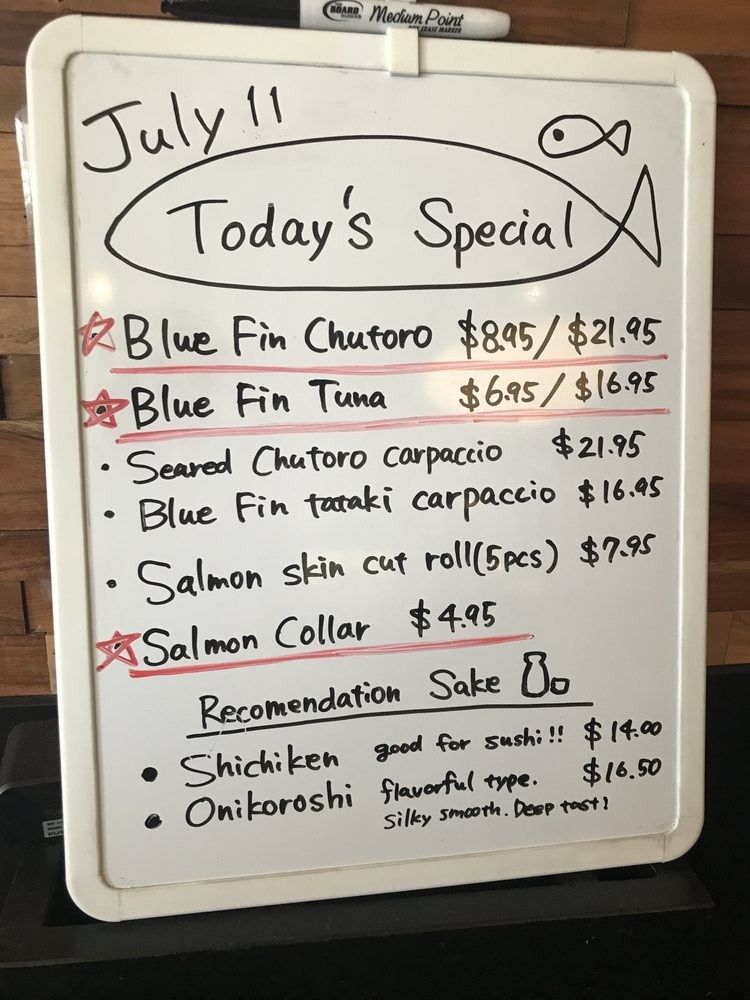 BOARD
Medium Point
DRY ERASE MARKER
July 11
Today's Special
Blue Fin Chutoro $8.95/$21.95
Blue Fin Tuna $6.95/$16.95
• Seared Chutoro carpaccio $21.95
• Blue Fin tataki carpaccio $16.95
• Salmon skin cut roll(5pcs) $7.95
Salmon Collar $4.95
Recomendation Sake
• Shichiken good for sushi!! $14.00
• Onikoroshi flavorful type. $16.50
Silky smooth. Deep tast!